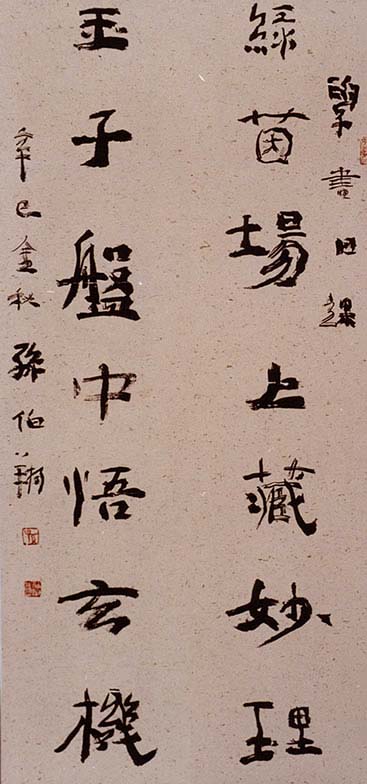 書
綠茵場上藏妙理
玉子盤中悟玄機
辛巳金秋孫伯翔